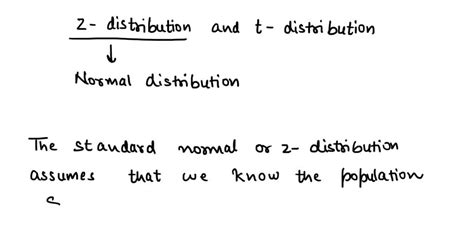 z- distribution and t- distribution
↓
Normal distribution
The standard normal or z- distribution
assumes that we know the population
s